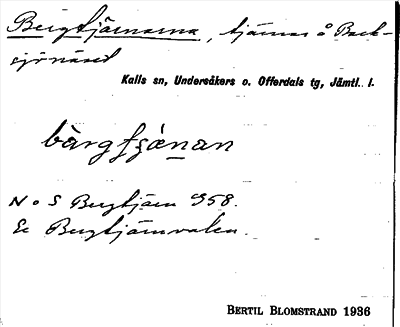 Bergtjärnarna, tjärnar å Back-
sjönäset
Kalls sn, Undersåkers o. Offerdals tg, Jämtl. l.
N o S Bergtjärn 958.
Ec Bergtjärnvalen.
BERTIL BLOMSTRAND 1936